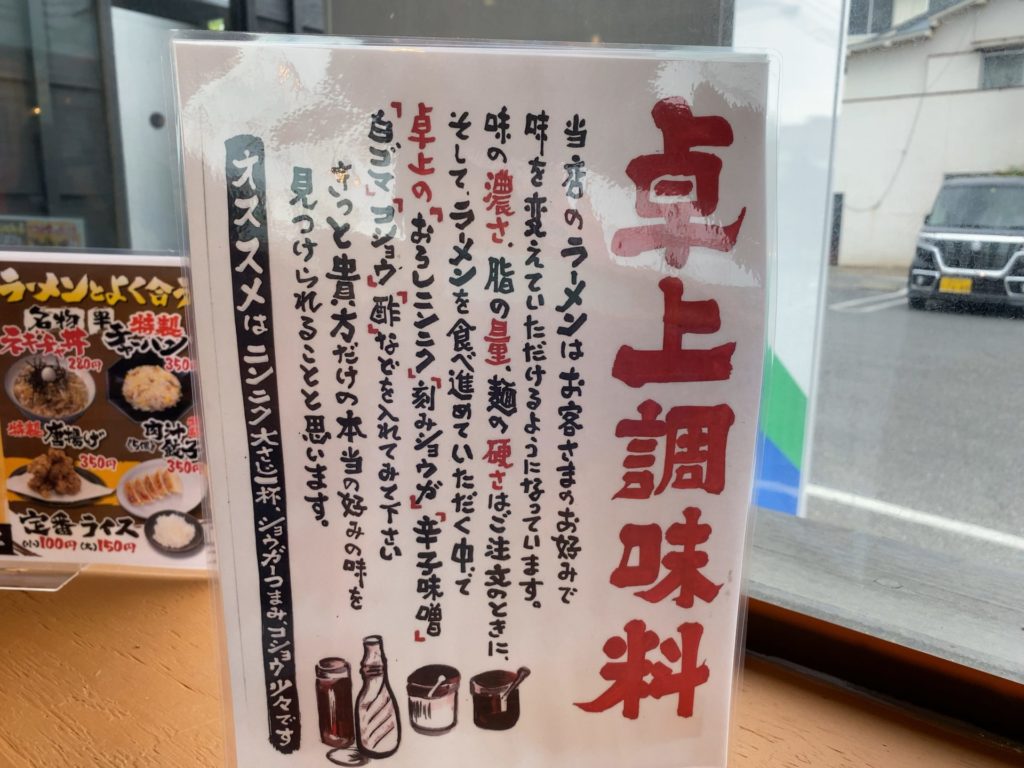 卓上調味料
当店のラーメンはお客さまのお好みで
味を変えていただけるようになっています。
味の濃さ、脂の量、麺の硬さはご注文のときに、
そして、ラーメンを食べ進めていただく中で
卓上の「おろしニンニク」「刻みショウガ」「辛子味噌」
「白ゴマ」「コショウ」「酢」などを入れてみて下さい
きっと貴方だけの本当の好みの味を
見つけられることと思います。
オススメは ニンニク大さじ一杯、ショウガ一つまみ、コショウ少々です
ラーメンとよく合う
名物
ネギチャ丼
280円
半
特製
チャーハン
350円
特製
唐揚げ
350円
肉汁
餃子
(5個)
350円
定番ライス
(小)100円(大)150円